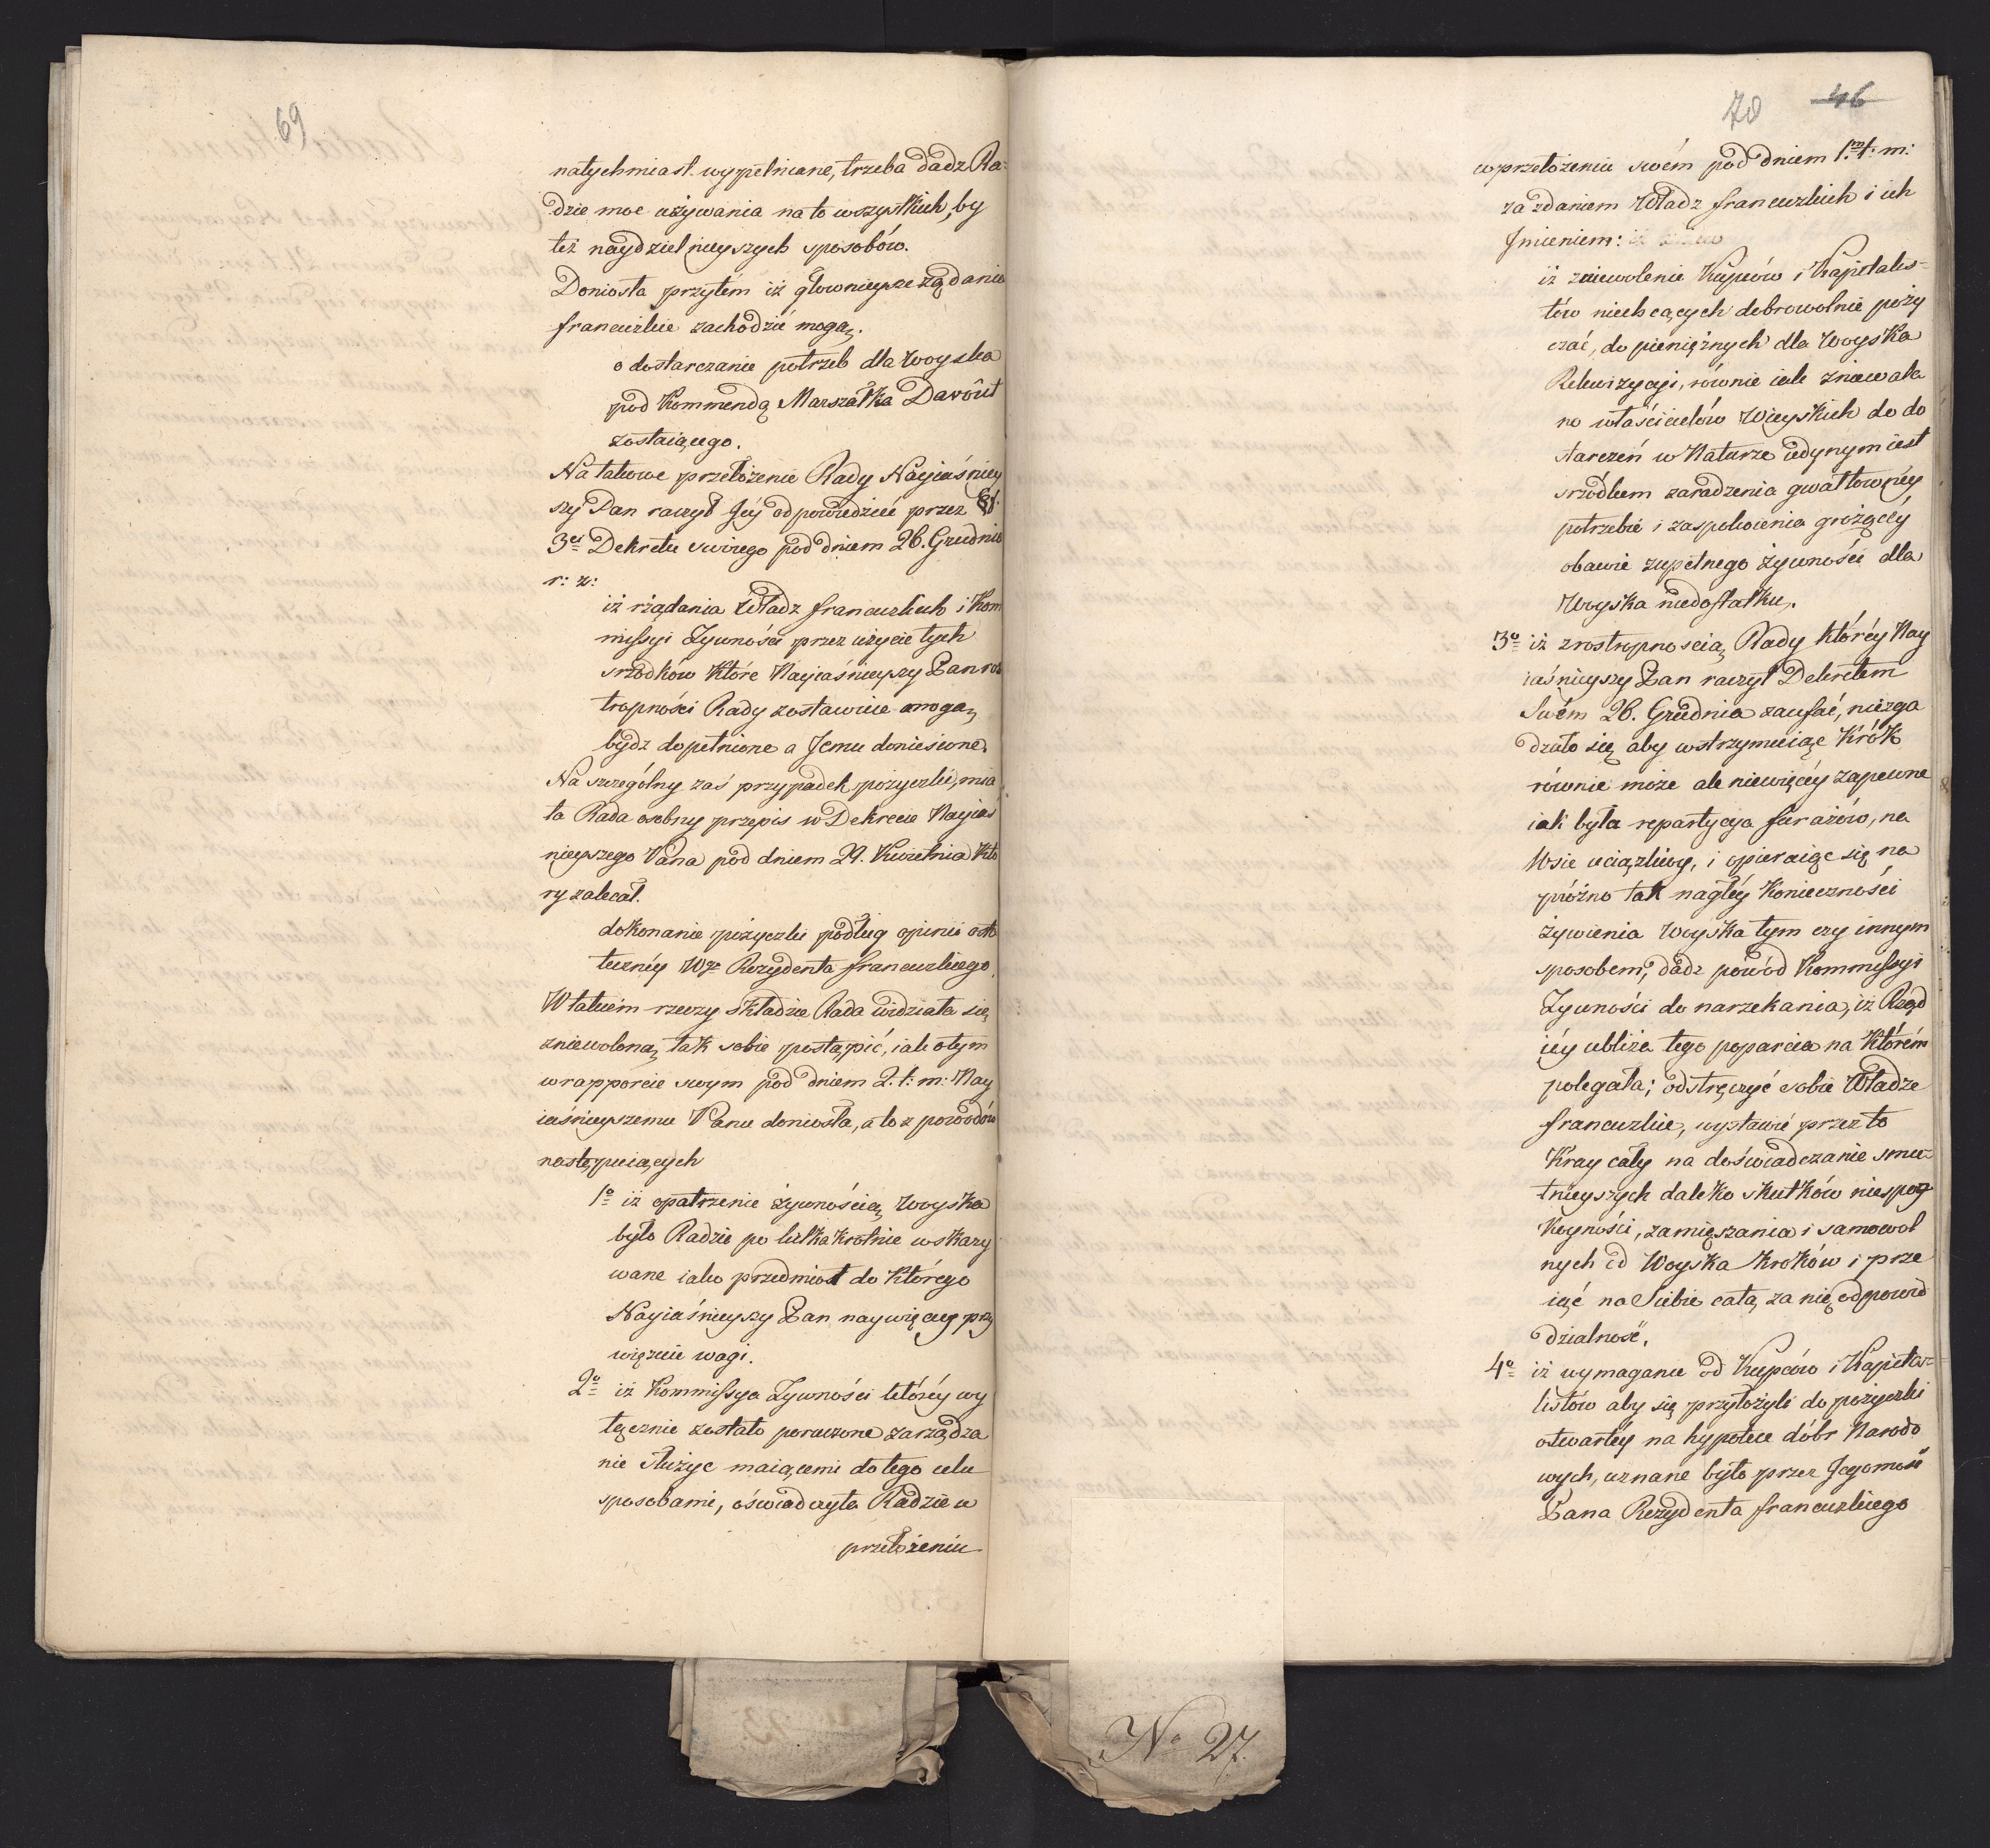 69
natychmiast wypełniane, trzeba dadz Ra=
dzie moc używania na to wszystkich, by
też naydzielnieyszych sposobów.
Doniosła przytém iż głownieysze żądania
francuzkie zachodzić mogą.
o dostarczanie potrzeb dla Woyska
pod Kommendą Marszałka Davoût
zostaiącego.
Na takowe przełożenie Rady Nayiaśniey
szy Pan raczył Jéy odpowiedzieć przez
3ci Dekretu swoiego pod dniem 26. Grudnia
r: z:
iż rżądania Władz francuzkich i Kom
missyi Żywności przez użycie tych
srzodków które Nayiaśnieyszy Pan roz
tropności Rady zostawuie mogą
bydz dopełnione a Jemu doniesione.
Na szczególny zaś przypadek pożyczki, mia
ła Rada osobny przepis w Dekrecie Nayias
nieyszego Pana pod dniem 29. Kwietnia Któ
ry zalecał.
dokonanie pożyczki podług opinii osta
teczney Wgo Rezydenta francuzkiego.
W takiém rzeczy składzie Rada widziała się
zniewoloną tak sobie postąpić, iak o tym
w rapporcie swym pod dniem 2. t: m: Nay
iaśnieyszemu Panu doniosła, a to z powodów
następuiących
1o iż opatrzenie żywnością Woyska
było Radzie po kilkakrotnie wskazy
wane iako przedmiot do którego
Nayiaśnieyszy Pan naywięcey przy
więzuie wagi.
2o iż Kommissya Żywności któréy wy
łącznie zostało poruczone zarządza
nie służyc maiącemi do tego celu
sposobami, oświadczyła Radzie w
przełożeniu
70 46
w przełożeniu swém pod dniem 1.m t: m:
za zdaniem Władz francuzkich i ich
Jmieniem:
iż zniewolenie Kupców i Kapitalis=
tów niechcących dobrowolnie poży
czać, do pieniężnych dla Woyska
Rekwizycyi, równie iak zniewala
no właścicielów Wieyskich do do
starczeń w Naturze iedynym iest
srzódkiem zaradzenia gwałtownéy
potrzebie i zaspokoienia grożącéy
obawie zupełnego żywności dla
Woyska niedostatku.
3o iż z rostropnoscią Rady któréy Nay
iaśnieyszy Pan raczył Dekretem
Swém 26. Grudnia zaufać, niezga
dzało się aby wstrzymuiąc Krók
równie może ale niewięcéy zapewne
iak była repartycya furażów, na
Wsie uciążliwy, i opieraiąc się na
próżno tak nagłéy Konieczności
żywienia Woyska tym czy innym
sposobem, dadz powód Kommissyi
Żywności do narzekania, iż Rząd
iéy ubliża tego poparcia na Którém
polegała; odstręczyć sobie Władze
francuzkie, wystawić przez to
Kray cały na doświadczanie smu=
tnieyszych daleko skutków niespoy
Koyności, zamięszania i samowol
nych od Woyska Kroków i prze
iąć na Siebie całą za nię odpowie
dzialność.
4o iż wymaganie od Kupców i Kapita=
listów aby się przyłożyli do pożyczki
otwartéy na hypotece dóbr Narodo
wych, uznane było przez Jegomość
Pana Rezydenta francuzkiego
No 27.